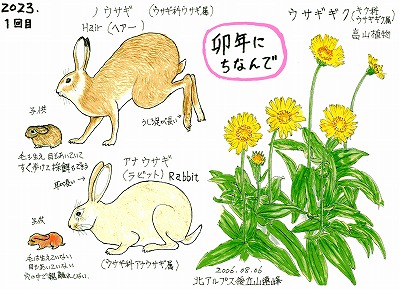 2023.
1回目
ノウサギ (ウサギ科ウサギ属)
Hair (ヘアー)
卯年に
ちなんで
ウサギギク (キク科
ウサギギク属)
高山植物
子供
うしろ足が長い
毛が生え 目もあいていて
すぐ歩けて 採餌もできる
耳が長い
アナウサギ
(ラビット) Rabbit
子供
毛は生えていない
目もあいていない
穴の中で
(ウサギ科アナウサギ属)
2006.08.06
北アルプス後立山連峰